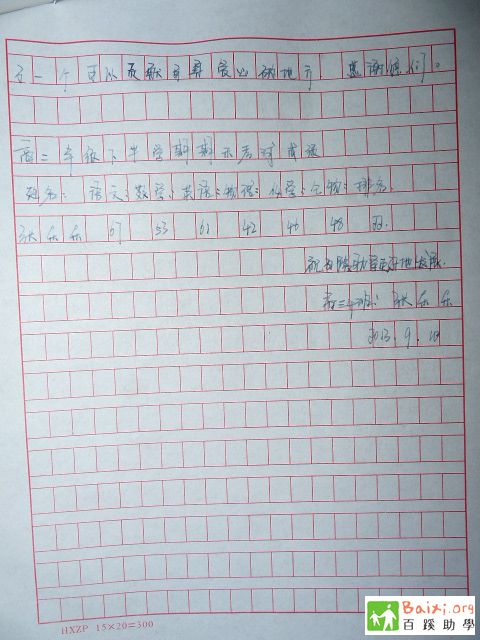 是一个可以 的地方 感谢你们。
高二年级下半学期期末考试成绩
姓名: 语文; 数学; 英语; 物理; 化学; 生物; 排名.
张乐乐 67 53 61 42 46 48
祝百蹊 更好地发展.
高三 班: 张乐乐
2013.9.18
HXZP 15×20=300
Baixi.org
百蹊助學